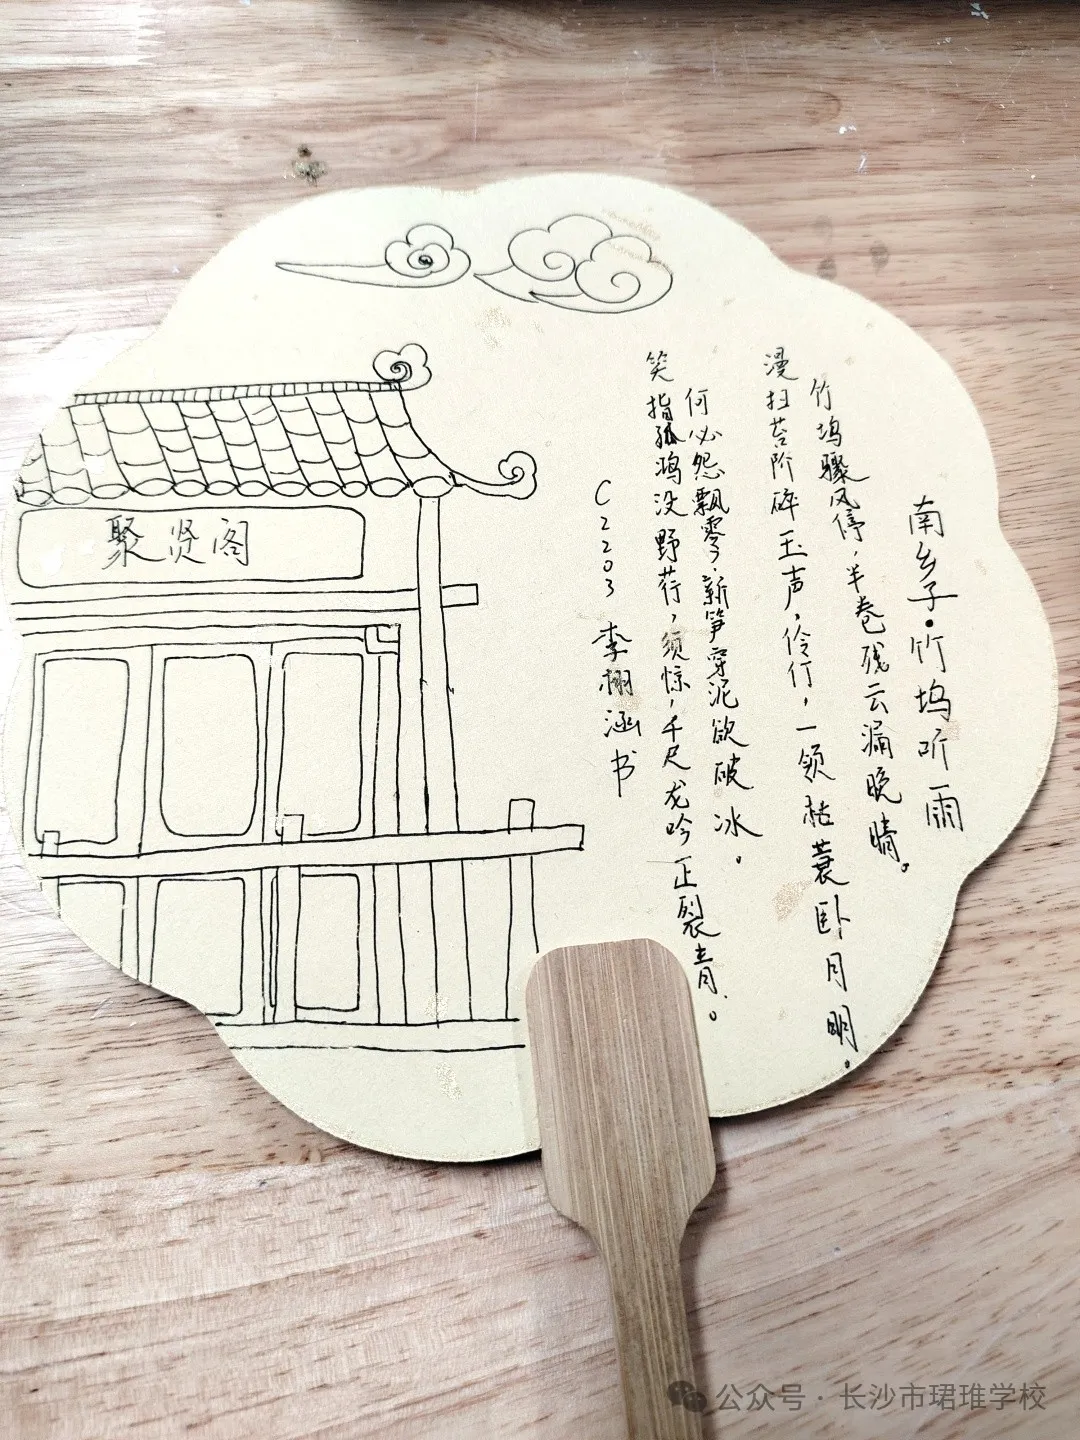 南乡子·竹坞听雨
竹坞骤风停，半卷残云漏晚晴。
漫扫苔阶碎玉声，伶仃，一领枯蓑卧月明。
何必怨飘零，新笋穿泥欲破冰。
笑指孤鸿没野荇，须惊，千尺龙吟正裂青。
C2203 李栩涵书
聚贤阁
公众号·长沙市珺琟学校